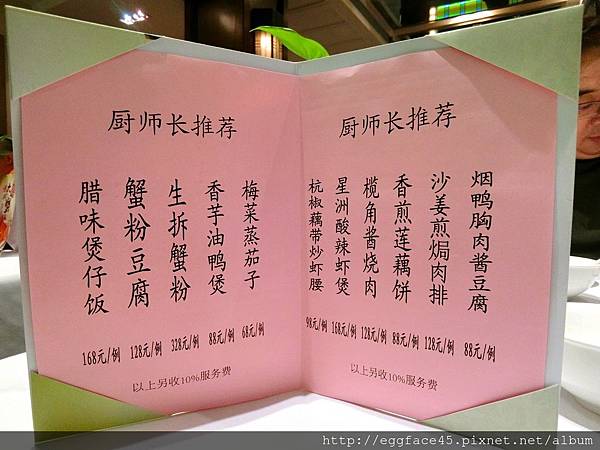 厨师长推荐
腊味煲仔饭
蟹粉豆腐
生拆蟹粉
香芋油鸭煲
梅菜蒸茄子
168元/例 128元/例 328元/例 88元/例 68元/例
以上另收10%服务费
厨师长推荐
杭椒藕带炒虾腰
星洲酸辣虾煲
榄角酱烧肉
香煎莲藕饼
沙姜煎焗肉排
烟鸭胸肉酱豆腐
98元/例 168元/例 128元/例 88元/例 128元/例 88元/例
以上另收10%服务费
http://eggface45.pixnet.net/album